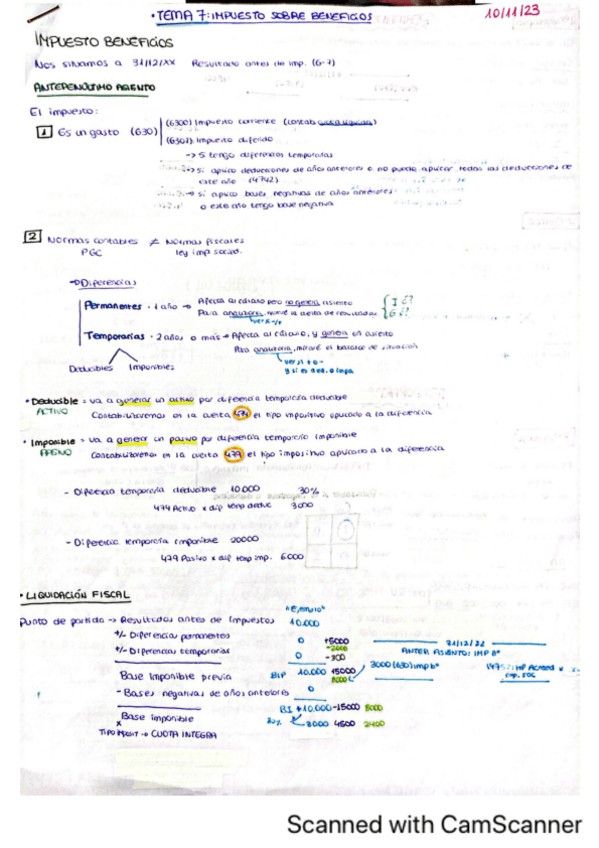 • TEMA 7: IMPUESTO SOBRE BENEFICIOS
10/11/23
IMPUESTO BENEFICIOS
Nos situamos a 31/12/XX Resultado antes de imp. (6-7)
ANTEPENÚLTIMO ASIENTO
El impuesto:
1 Es un gasto (630)
(6300) Impuesto corriente (contab
(6301) Impuesto diferido
-> Si tengo diferencias temporarias
-> Si aplico deducciones de años anteriores o no puedo aplicar todas las deducciones de
este año (4742)
-> Si aplico bases negativas de años anteriores
o este año tengo base negativa
2 Normas contables ≠ Normas fiscales
PGC ley imp socied.
-> Diferencias
Permanentes · 1 año -> Afecta al cálculo pero no genera asiento
Para analizarla, miraré la cuenta de resultados { I G
ver si +/-
Temporarias · 2 años o más -> Afecta al cálculo, y genera un asiento
Para analizarla, miraré el balance de situación
ver si + o -
y si es ded. o impo.
Deducibles Imponibles
• Deducible = va a generar un activo por diferencia temporaria deducible
ACTIVO Contabilizaremos en la cuenta 474 el tipo impositivo aplicado a la diferencia
• Imponible = va a generar un pasivo por diferencia temporaria imponible
PASIVO Contabilizaremos en la cuenta 479 el tipo impositivo aplicado a la diferencia
- Diferencia temporaria deducible 10000 30%
474 Activo x dif temp deduc 3000
- Diferencia temporaria imponible 20000
479 Pasivo x dif temp imp. 6000
• LIQUIDACIÓN FISCAL
"Ejemplo"
Punto de partida -> Resultados antes de Impuestos 10.000
+/- Diferencias permanentes 0 +5000
-2000
+/- Diferencias temporarias 0 -300
31/12/22
ANTEP. ASIENTO: IMP Bº
Base Imponible previa BIP 10.000 15000
8000
3000 (630) Imp bº (4752) HP Acreed x
imp. soc
- Bases negativas de años anteriores 0
Base imponible BI +10.000 -15000 8000
x
Tipo impositi -> CUOTA INTEGRA 30% 3000 4500 2400
Scanned with CamScanner